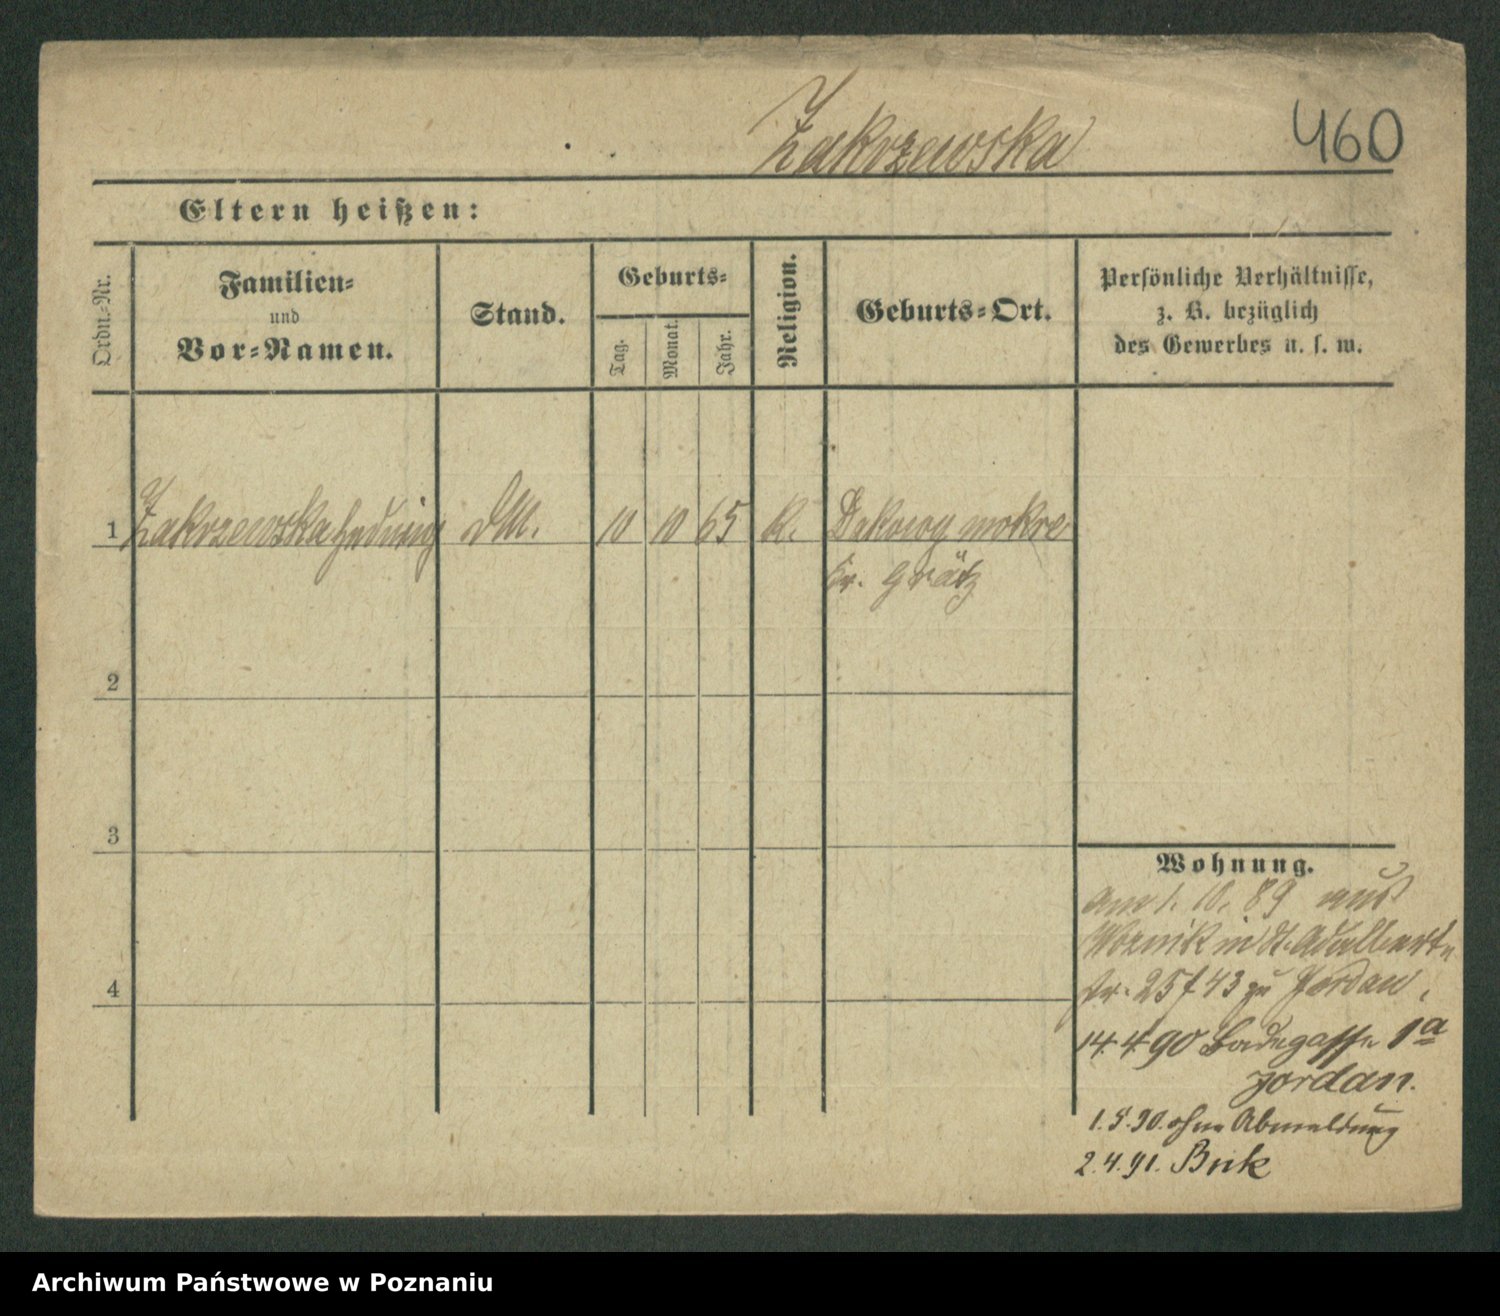 Zakrzewska
460
Eltern heißen:
Ordn.-Nr.
Familien-
und
Vor-Namen.
Stand.
Geburts-
Tag.
Monat.
Jahr.
Religion.
Geburts-Ort.
Persönliche Verhältnisse,
z. B. bezüglich
des Gewerbes u. s. w.
1 Zakrzewska Hedwig DM. 10 10 65 K. Dakowy mokre
Kr. Grätz
2
3
4
Wohnung.
am 1. 10. 89 aus
Woznik in St. Adalbert
str. 25/43 zu Jordan.
14.4.90 Badegasse 1a
Jordan.
1.5.90. ohne Abmeldung
2.4.91. Buk
Archiwum Państwowe w Poznaniu